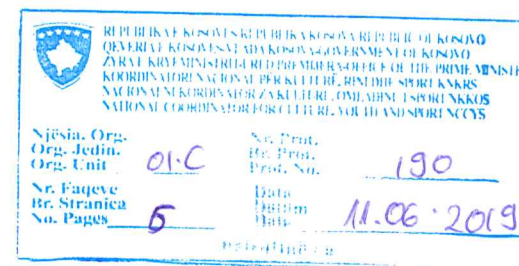 REPUBLIKA E KOSOVËS-REPUBLIKA KOSOVA-REPUBLIC OF KOSOVO
QEVERIA E KOSOVËS-VLADA KOSOVA-GOVERNMENT OF KOSOVO
ZYRA E KRYEMINISTRIT-URED PREMIJERA-OFFICE OF THE PRIME MINISTE
KOORDINATORI NACIONAL PËR KULTURË, RINI DHE SPORT KNKRS
NACIONALNI KORDINATOR ZA KULTURE, OMLADINE I SPORT NKKOS
NATIONAL COORDINATOR FOR CULTURE, YOUTH AND SPORT NCCYS
Njësia. Org. Nr. Prot.
Org. Jedin. Br. Prot.
Org. Unit 01.C Prot. No. 190
Nr. Faqeve Data
Br. Stranica Datum
No. Pages 5 Date 11.06.2019